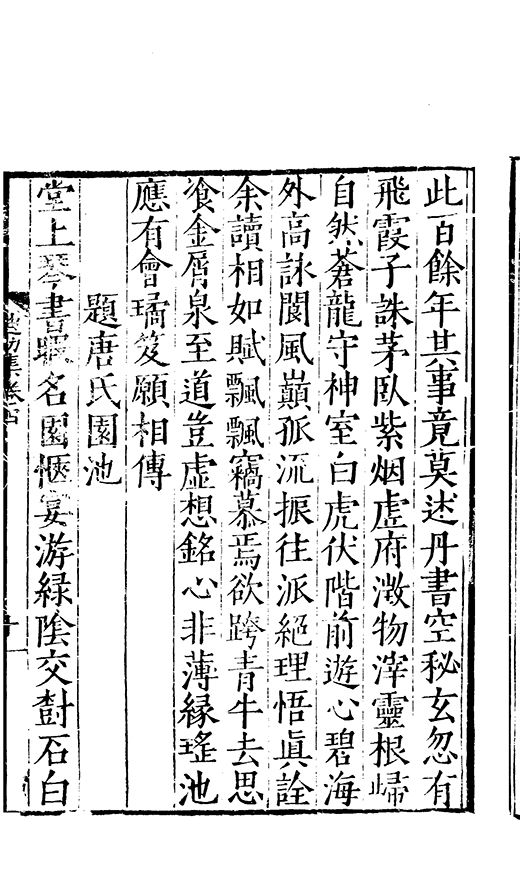 此百餘年其事竟莫述丹書空秘玄忽有
飛霞子誅茅臥紫烟虛府澂物滓靈根歸
自然蒼龍守神室白虎伏階前遊心碧海
外高詠閬風巔孤流振往派絕理悟眞詮
余讀相如賦飄飄竊慕焉欲跨青牛去思
飡金屑泉至道豈虛想銘心非薄緣瑤池
應有會璚笈願相傳
題唐氏園池
堂上琴書暇名園愜宴游綠陰交對石白